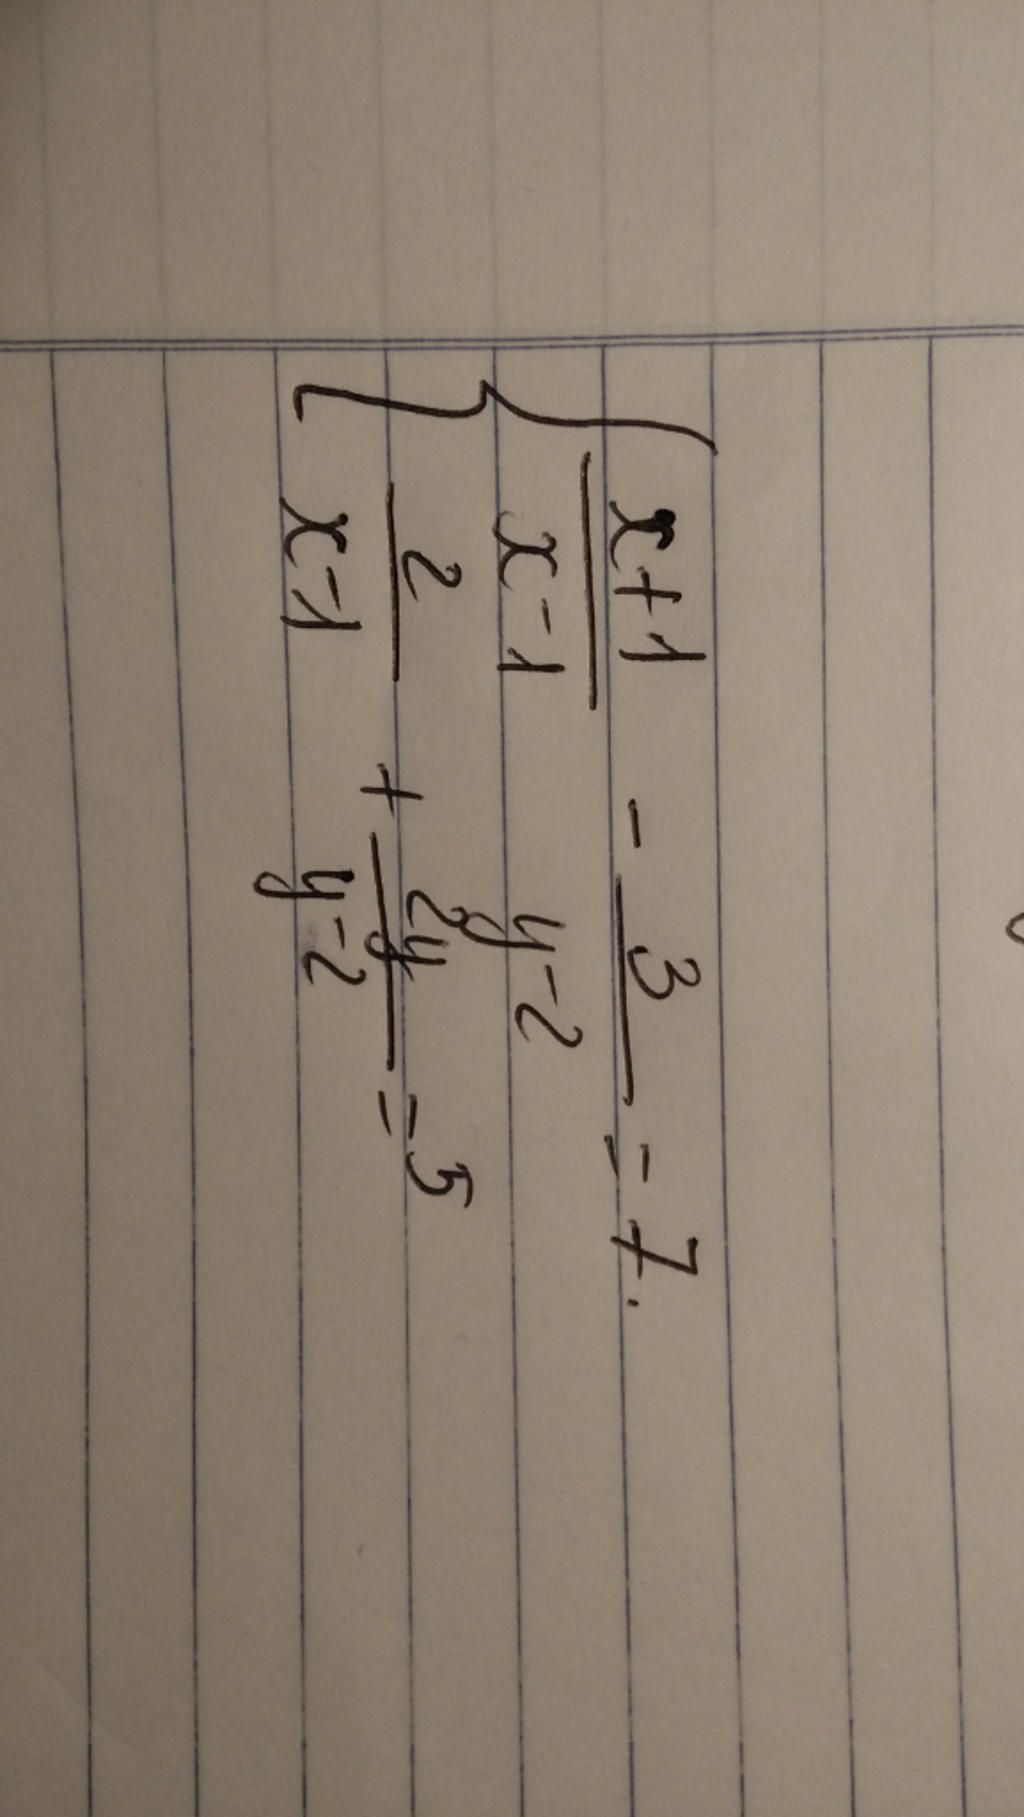 { x+1 / x-1 - 3 / y-2 = 7.
2 / x-1 + 2y / y-2 = 5